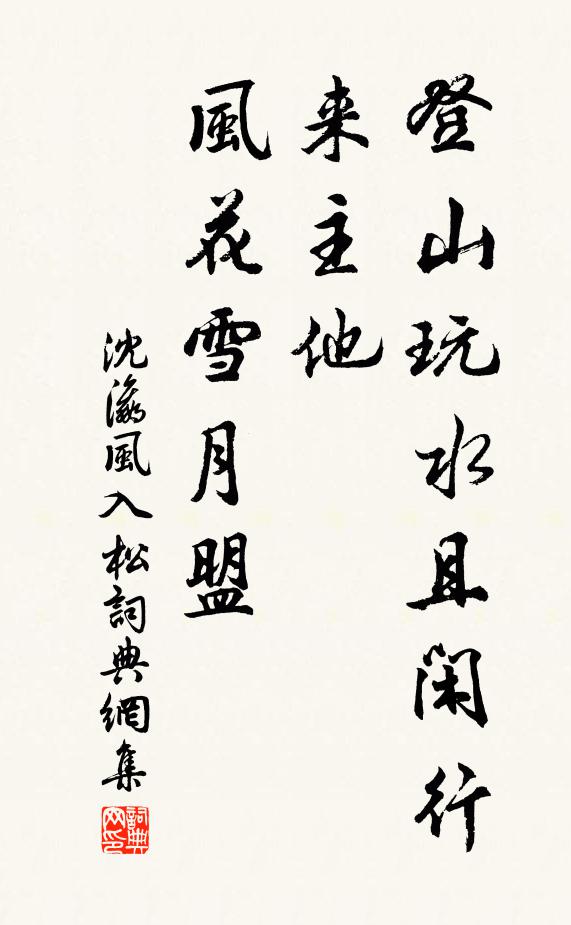 登山玩水且閑行
来主他
風花雪月盟
沈瀛風入松詞典網集
詞典网印